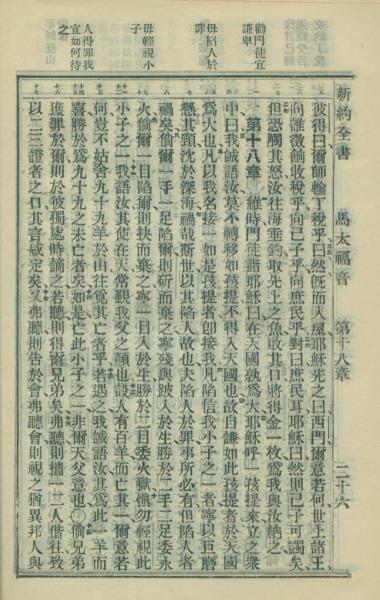 新約全書 馬太福音 第十八章 三十六
彼得曰爾師輸丁稅乎曰然旣而入屋耶穌先之曰西門爾意若何世上諸王
向誰徵餉收稅乎向己子乎向庶民乎對曰庶民耳耶穌曰然則己子可蠲矣
但恐觸其怒汝往海垂釣取先上之魚啟其口將得金一枚爲我與汝納之
勸門徒宜
謙卑
第十八章 維時門徒詣耶穌曰在天國孰爲大耶穌呼一孩提來立之衆
中曰我誠語汝莫不轉移如孩提不得入天國也故自謙如此孩提者於天國
毋陷人於
罪
爲大也凡以我名接一如是孩提者卽接我凡陷信我小子之一者寧以巨磨
懸其頸沈於深海禍哉斯世以其陷人故也夫陷人於罪事所必有但陷人者
禍矣倘爾一手一足陷爾則斫而棄之寧殘與跛入於生勝於二手二足委永
火倘爾一目陷爾則抉而棄之寧一目入於生勝於二目委火獄愼勿輕視此
毋輕視小
子
小子之一我語汝其使在天常覲我父之顏也設人有百羊而亡其一爾意若
何豈不姑舍九十九羊於山往覓其亡者乎若遇之我誠語汝其爲此一羊而
喜勝於爲九十九之未亡者矣如是亡此小子之一非爾天父意也○倘兄弟
人得罪我
宜如何待
之
獲罪於爾則於彼獨處時謫之若聽則得爾兄弟矣弗聽則攜一二人偕往致
以二三證者之口其言咸定矣又弗聽則告於會弗聽會則視之猶異邦人與